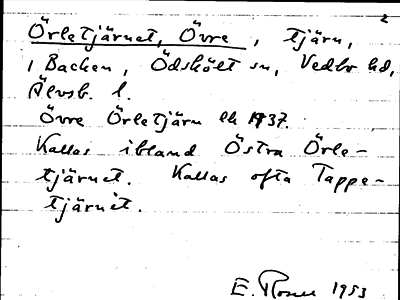 2
Örletjärnet, Övre, tjärn,
i Backen, Ödskölt sn, Vedbo hd,
Älvsb. l.
Övre Örletjärn ek 1937.
Kallas ibland Östra Örle-
tjärnet. Kallas ofta Tappe-
tjärnet.
E. 1953